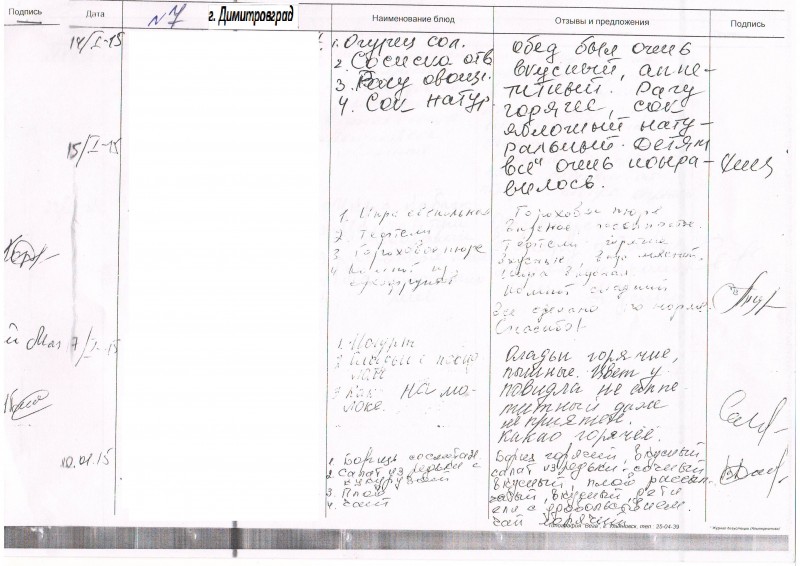 Подпись Дата №7 г. Димитровград Наименование блюд Отзывы и предложения Подпись
14/I-15
1. Огурец сол.
2. Сосиска отв
3. Рагу овощ.
4. Сок натур.
обед был очень
вкусный, аппе-
титный. Рагу
горячее, сок
яблочный нату-
ральный. Детям
всё очень понра-
вилось.
15/I-15
1. Икра свекольная
2 Тефтели
3 Гороховое пюре
4 Компот из
сухофруктов
Гороховое пюре
вкусное,
Тефтели горячие
вкусные,
Икра вкусная
Компот сладкий
Все сделано по норме.
Спасибо!
7/I-15
1. Йогурт
2 Оладьи с
3 Какао на мо-
локе.
Оладьи горячие,
пышные. Цвет у
повидла не аппе-
титный даже
не приятен.
Какао горячее.
20.01.15
1. Борщ со сметан.
2. Салат из редьки с
кукурузой
3. Плов
4. Чай
Борщ горячий, вкусный
салат из редьки - сочный
вкусный, плов рассып-
чатый, вкусный, дети
ели с удовольствием.
Чай горячий.
Типография "Вега", г. Ульяновск, тел. 25-04-39